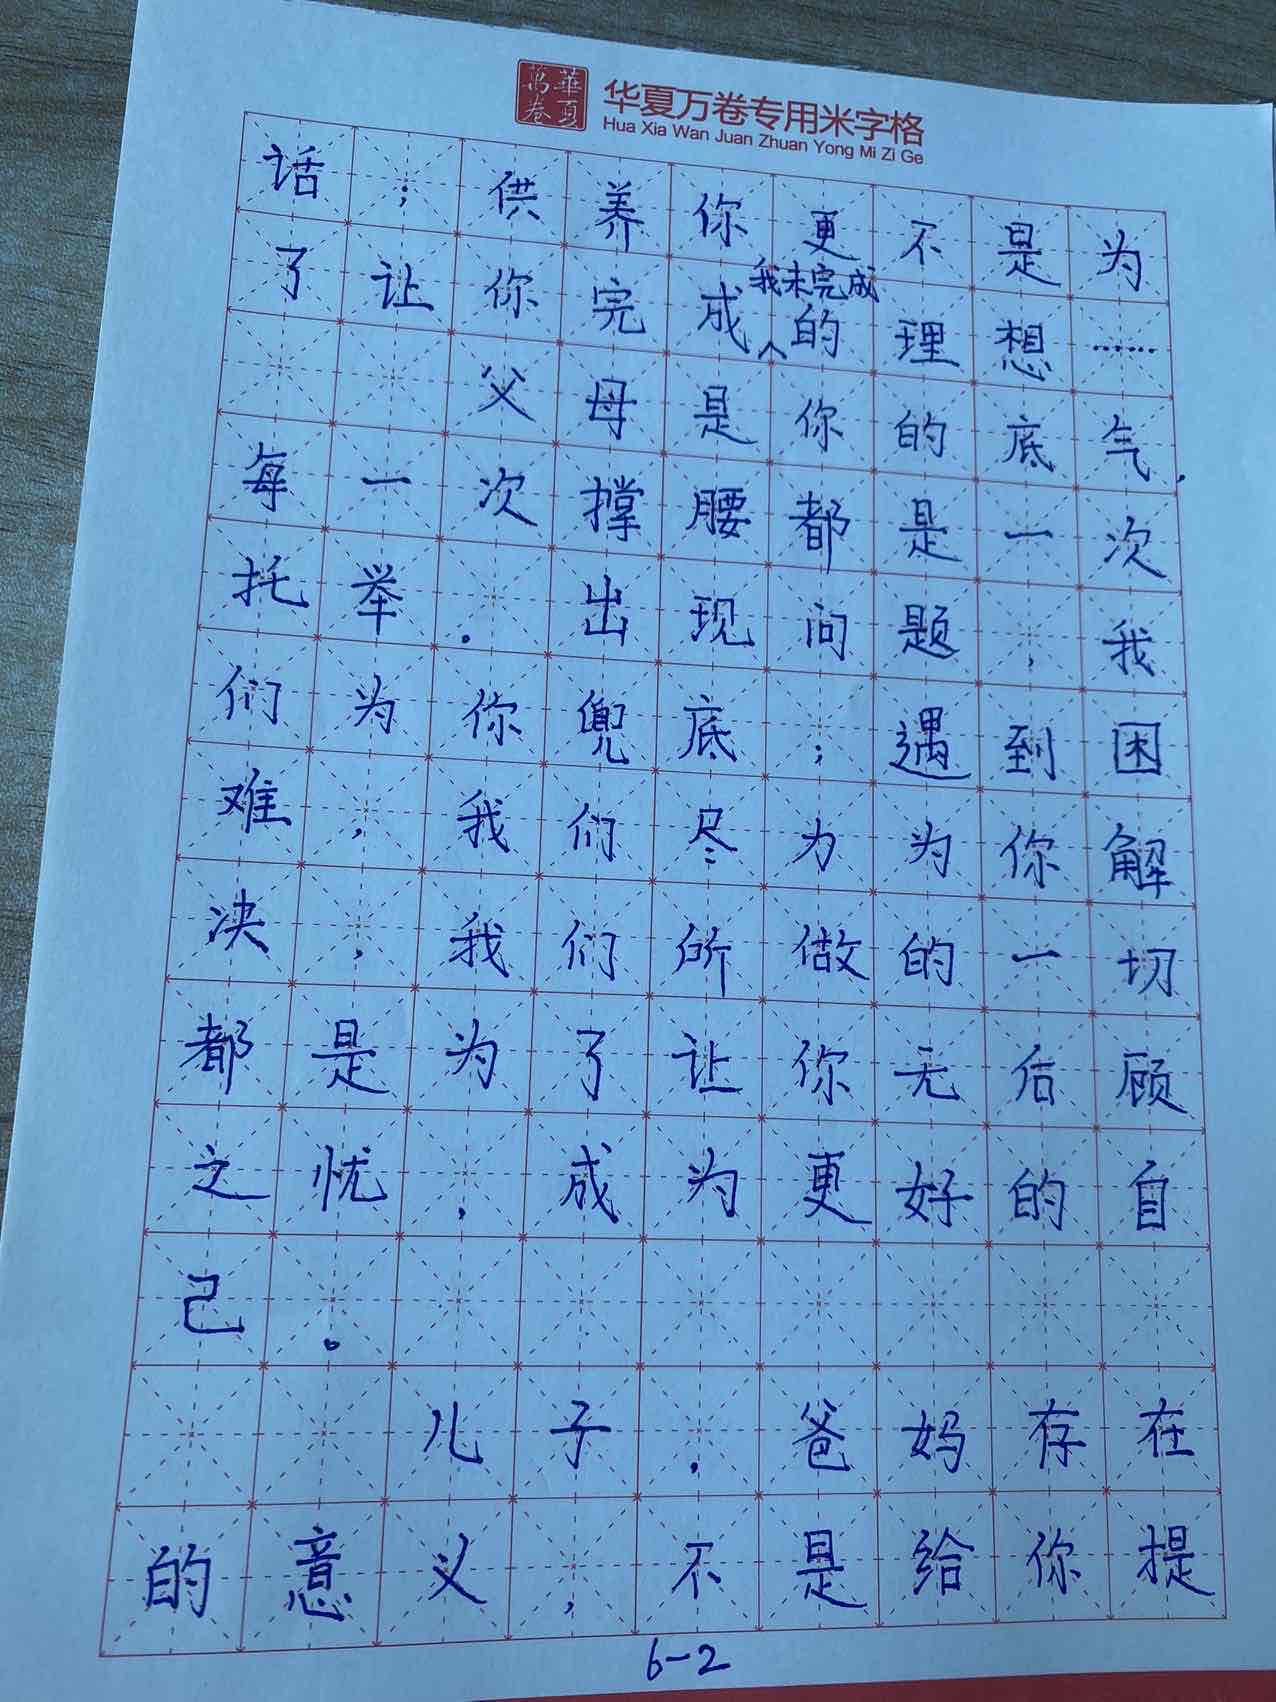 萬華
卷夏
华夏万卷专用米字格
Hua Xia Wan Juan Zhuan Yong Mi Zi Ge
话；供养你更不是为
我未完成
了让你完成∧的理想……
父母是你的底气，
每一次撑腰都是一次
托举。出现问题，我
们为你兜底；遇到困
难，我们尽力为你解
决，我们所做的一切
都是为了让你无后顾
之忧，成为更好的自
己。
儿子，爸妈存在
的意义，不是给你提
6-2